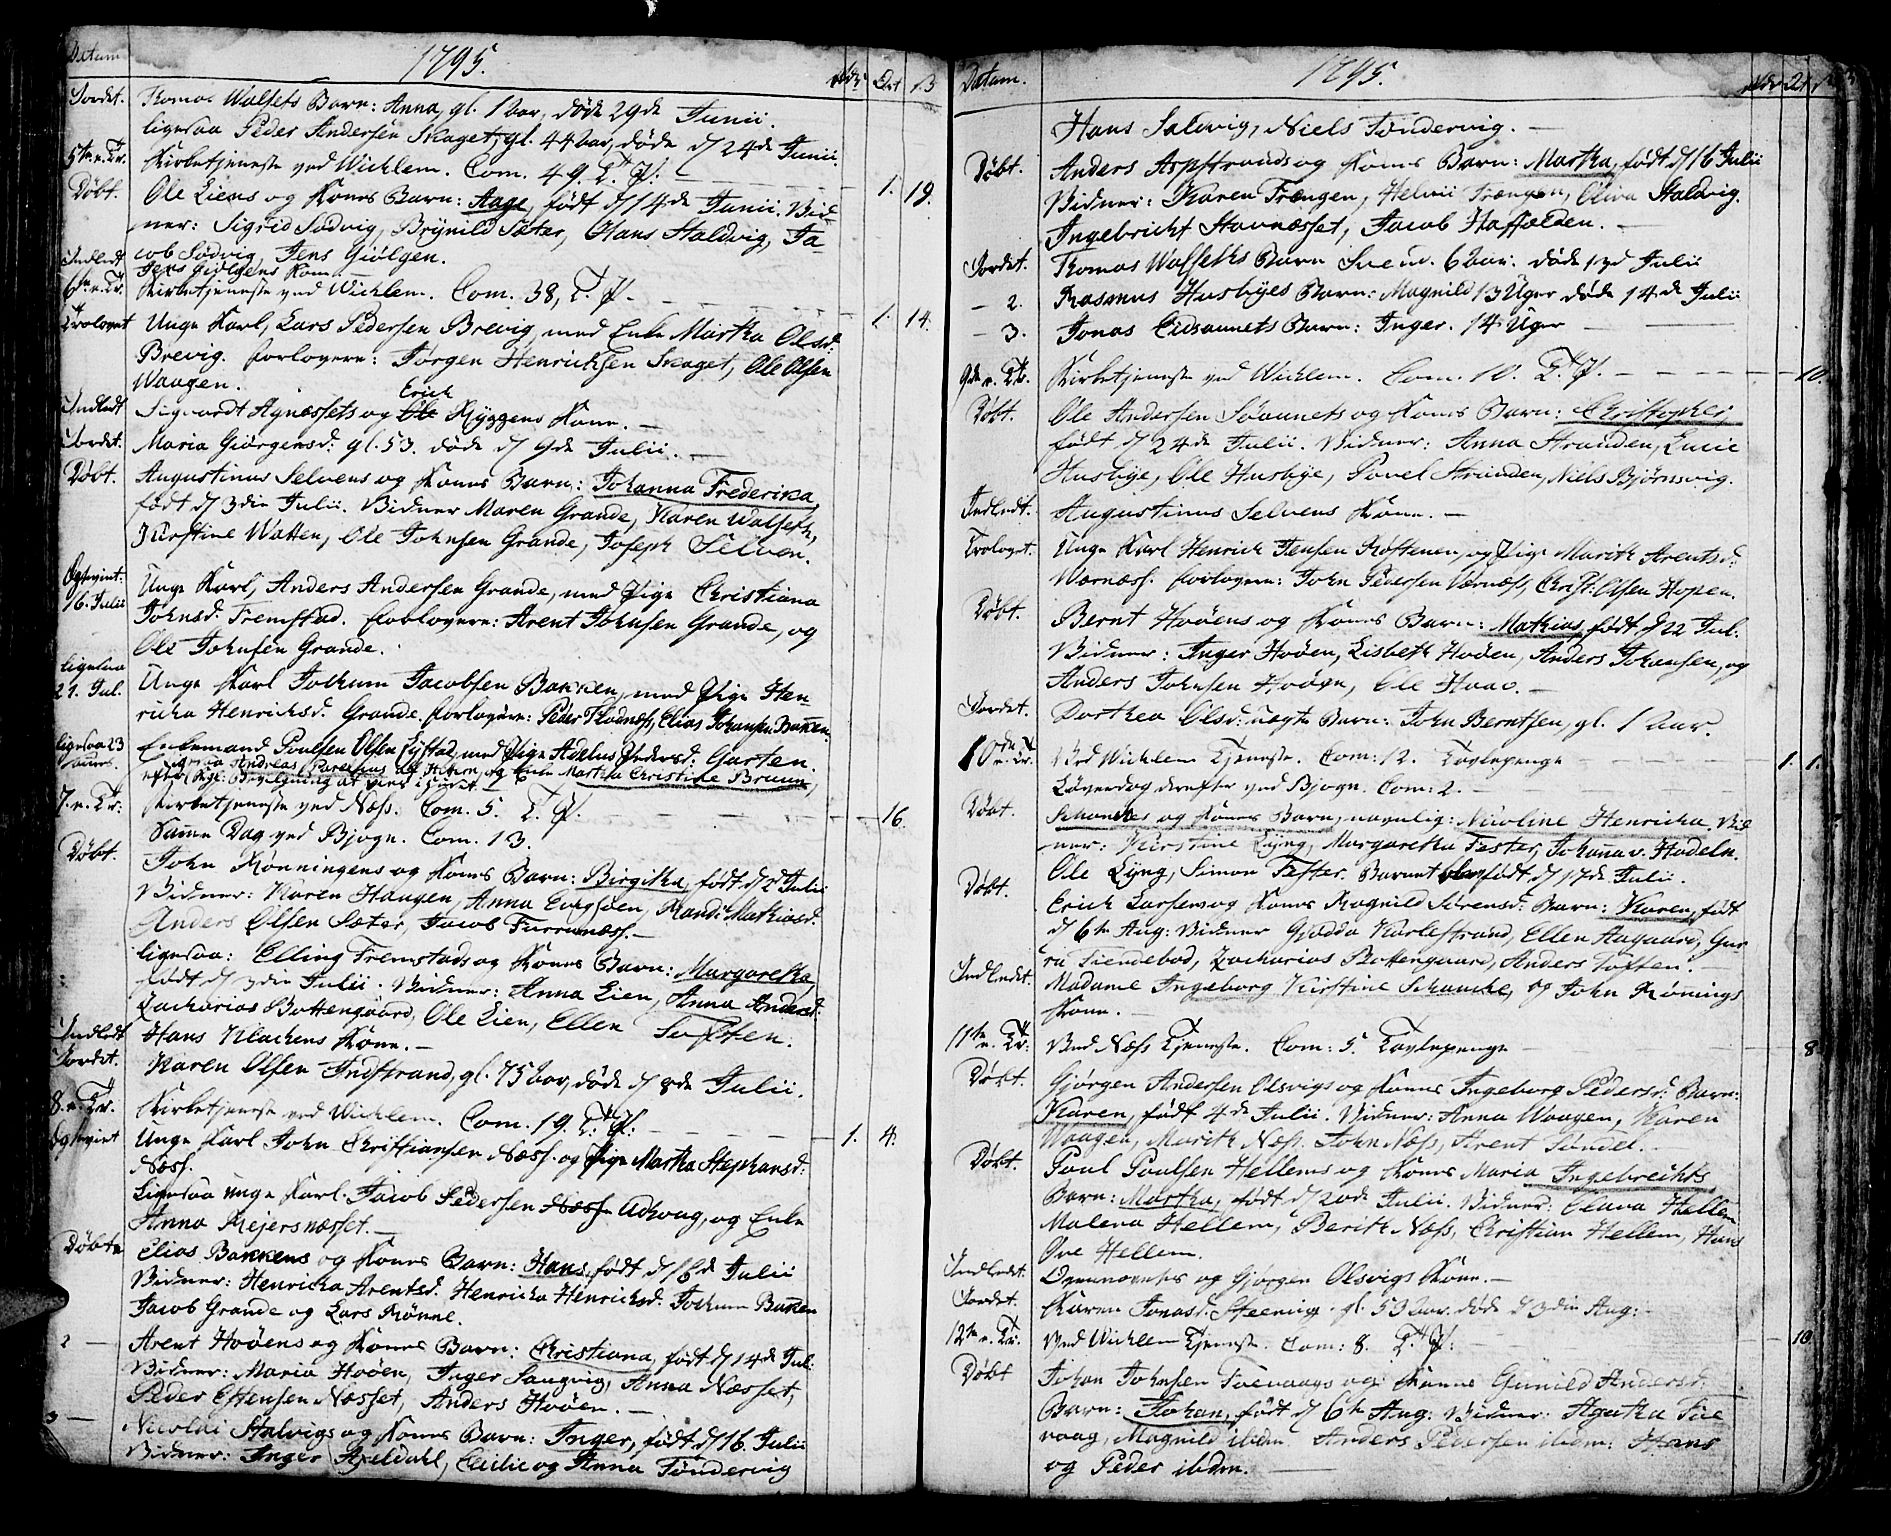 Datum
1795.
Ort
Jordet. Thomas Walsets Barn: Anna, gl. 1 aar, døde 29de Junii.
ligesaa Peder Andersen Skaget, gl. 44 aar, døde d 24de Junii.
5te e. Tr. Kirketjeneste ved Wichlem. Com. 49. T. P. 1. 19.
Døbt. Ole Liens og Kones Barn: Aage, født d 14de Junii. Vid-
ner: Sigrid Sødvig, Brynild Sæter, Hans Staldvig, Ja-
cob Sødvig, Jens Giølgen.
Indledt Jens Giølgens Kone
6te e. Tr. Kirketjeneste ved Wichlem. Com. 38, T. P. 1. 14.
Trolovet Unge Karl, Lars Pedersen Brevig, med Enke Martha Olsd:
Brevig. forlovere: Jørgen Henrichsen Skaget, Ole Olsen
Waagen.
Erich
Indledt Sigvardt Agnæssets og Ole Ryggens Kone.
Jordet. Maria Giørgensd. gl. 53. døde d 9de Julii.
Døbt. Augustinus Selvens og Kones Barn: Johanna Frederica,
født d 3din Julii. Vidner Maren Grande, Karen Walseth,
Kirstine Watten, Ole Johnsen Grande, Joseph Selven.
Copulert: Unge Karl, Anders Andersen Grande, med Pige Christiana
16. Julii Johnsd. Fremstad. forlovere: Arent Johnsen Grande, og
Ole Johnsen Grande.
ligesaa Unge Karl Jochum Jacobsen Bakken, med Pige Hen-
21. Jul. ricka Henricksd. Grande. forlovere: Peder Flodnæss, Elias Johansen Bakken.
ligesaa 23 Enkemand Poulsen Olsen Lystad, med Pige Adelus Pedersd: Garten.
Andreas og Enke Martha Christine Bruun,
efter Kgl: Bevilgning at vies i Huset.
7. e. Tr. Kirketjeneste ved Næss. Com. 5. T. P. 16.
Samme Dag ved Bjogn. Com. 13.
Døbt. John Rønningens og Kones Barn: Birgitha, født d 2d Julii
Vidner: Karen Haugen, Anna Randi Mathiasd.
Anders Olsen Sæter, Jacob Furrunæss.
ligesaa: Elling Fremstads og Kones Barn: Margaretha,
født d 3din Julii. Vidner: Anna Lien, Anna Andersd.
Zacharias Bottengaard, Ole Lien, Ellen Toften.
Indledt Hans Klackens Kone.
Jordet. Karen Olsen Indstrand, gl. 75 aar, døde d 8de Julii.
8. e. Tr. Kirketjeneste ved Wichlem. Com. 19. T. P. 1. 4.
Copulert Unge Karl John Christiansen Næss. og Pige Martha Stephansd:
Næss.
Ligesaa unge Karl. Jacob Pedersen Næss Advaag, og Enke
Anna Rejersnæsset.
Døbte Elias Bakkens og Kones Barn: Hans, født d 16de Julii
Vidner: Henricka Arentsd. Henricka Henricksd. Jochum Bakken
Jacob Grande og Lars Rønne.
2 Arent Hovens og Kones Barn: Christiana, født d 14de Jul:
Vidner: Maria Hoven, Inger Anna Næsset,
Peder Ellensen Næsset, Anders Hoven.
3 Nicolai Stalvigs og Kones Barn: Inger, født d 16. Julii
Vidner: Inger Axeldahl, Cecilie og Anna Tøndervig
Datum.
1795.
Hans Saldvig, Niels Tøndervig.
Døbt. Anders Aspstrands og Kones Barn: Martha, født d 16 Julii
Vidner: Karen Frængen, Helvii Frængen, Oliva Staldvig.
Ingebricht Stavnæsset, Jacob Haffælden.
Jordet. Thomas Walseths Barn 6 aar. døde 13d Julii
2. Rasmus Husbyes Barn: Magnild 13 Uger døde 14de Julii
3. Jonas Eidsaunets Barn: Inger. 14 Uger
9de e. Tr. Kirketjeneste ved Wichlem. Com. 10. T. P. 10.
Døbt. Ole Andersen Søvunets og Kones Barn: Christopher,
født d 24de Julii. Vidner: Anna Stranden, Lucie
Husbye, Ole Husbye, Povel Stranden, Niels Bjørnsvig.
Indledt. Augustinus Selvens Kone.
Trolovet. Unge Karl Henrich Jensen Røstenen, og Pige Marith Arentsd:
Værnæss. forlovere: John Pedersen Værnæss, Christ: Olsen Hopen.
Døbt. Bernt Hovens og Kones Barn: Mathias, født d 22 Jul:
Vidner: Inger Hoven, Lisbeth Hoven, Anders Johansen, og
Anders Johnsen Hoven, Ole Haav.
Jordet. Dorthea Olsd: uægte Barn: John Berntsen, gl. 1 Aar.
10de e. Tr. Ved Wichlem Tjeneste. Com: 12. Tavlepenge 1. 1.
Løverdag derefter ved Bjogn. Com: 2.
Døbt. Schanches og Kones Barn, navnlig: Nicoline Henricka. Vid-
ner: Kirstine Lyng, Margaretha Fester, Johanna v. Hadeln.
Ole Lyng, Simon Fester. Barnet født d 17de Julii.
Døbt. Erich Larsens og Kones Ragnild Sørensd: Barn: Karen, født
d 6te Aug: Vidner Gjødda Karlestrand, Ellen Aagaard, Gu-
ru Fiendebod, Zacharias Bottengaard, Anders Toften.
Indledt. Madame Ingeborg Kirstine Schancke, og John Rønnings
Kone.
11te e. Tr: Ved Næss Tjeneste. Com: 5. Tavlepenge 8
Døbt. Gjørgen Andersen Olsvigs og Kones Ingeborg Pedersd: Barn:
Karen, født 4de Julii. Vidner: Anna Waagen, Karen
Waagen, Marith Næss. John Næss, Arent Sundet.
Døbt. Poul Poulsen Hellems og Kones Maria Ingebrechts
Barn: Martha, født d 20de Julii. Vidner: Elava Hellem
Malena Hellem, Berith Næss, Christian Hellem, Hans
Ove Hellem.
Indledt. og Gjørgen Olsvigs Kone.
Jordet. Karen Jonasd. gl. 53 aar. døde d 3din Aug:
12te e. Tr. Ved Wichlem Tjeneste. Com: 8. T. P. 10
Døbt Johan Johnsen Tuevaags og Kones Gunild Andersd.
Barn: Johan, født d 6te Aug: Vidner: Agatha Tue-
vaag, Magnild ibdm Anders Pedersen ibdm: Hans
og Peder ibdm.